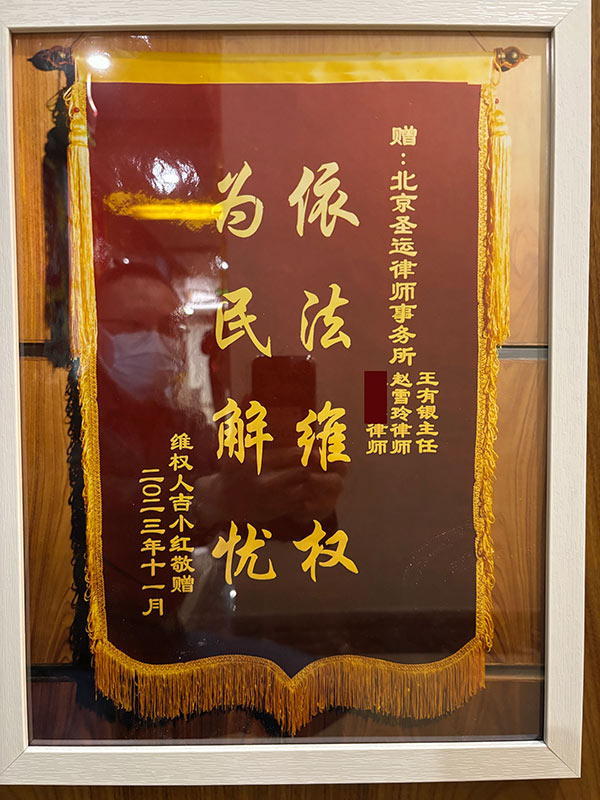 赠：北京圣运律师事务所
王有银主任
赵雪玲律师
律师
依法维权
为民解忧
维权人吉小红敬赠
二〇二三年十一月